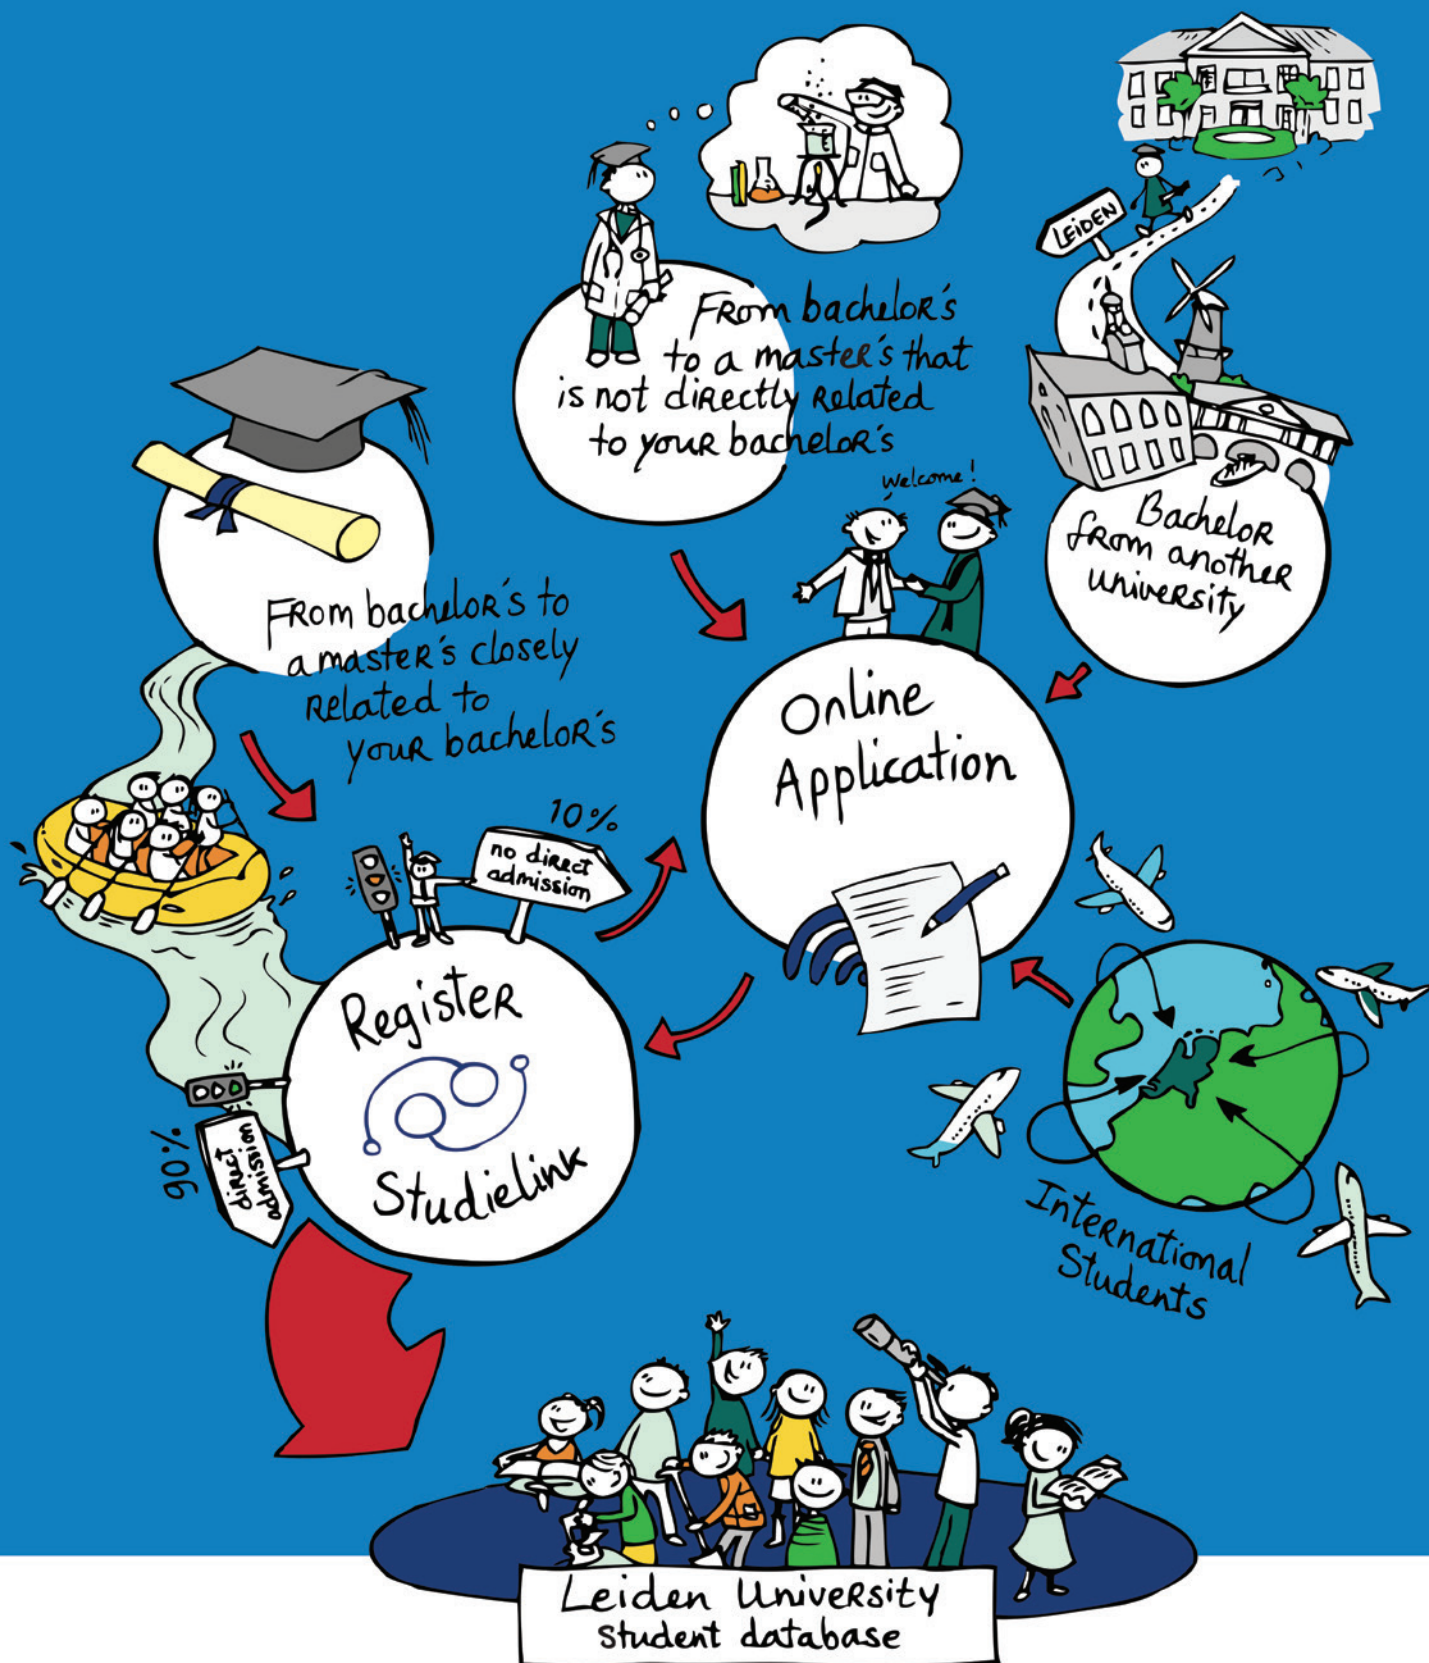 LEIDEN
From bachelor's
to a master's that
is not directly related
to your bachelor's
Welcome!
Bachelor
from another
university
From bachelor's to
a master's closely
related to
your bachelor's
Online
Application
10%
no direct
admission
Register
Studielink
90%
direct
admission
International
Students
Leiden University
Student database